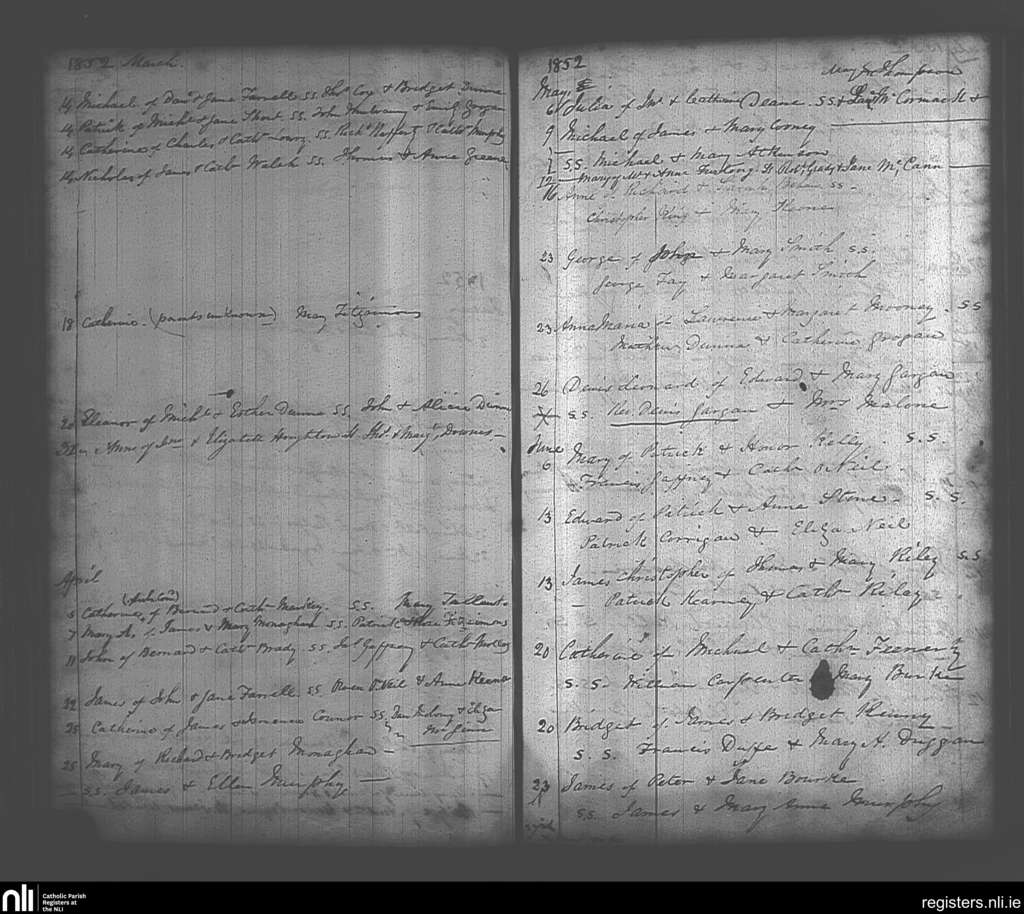 1852 March
14 Michael of Danl & Jane Farrell S.S. Thos Coy & Bridget Dunne
14 Patrick of Michl & Jane Short SS. John Mulvany & Emily Grogan
14 Catherine of Charles & Cathn Lowry S.S. & Cathe Murphy
14 Nicholas of James & Cathe Walsh SS. Thomas & Anne Greene
18 Catherine (parents unknown) Mary Fitzsimons
Eleanor of Michl & Esther Dunne SS. John & Alicia Dunne
Anne of & Elizabeth Houghton Thos & Margt Downes
April
5 Catherine of Bernard & Cathn Markey. S.S. Mary Tallant
7 Mary An. of James & Mary Monaghan S.S. Patrick & Fitzsimons
11 John of Bernard & Cathe Brady S.S. Gaffney & Cathe
22 James of John & Jane Farrell S.S. Owen O'Neil & Anne Keena
25 Catherine of James & Connor S.S. & Eliza
25 Mary of Richard & Bridget Monaghan
S.S. James & Ellen Murphy
1852
Mary Thompson
May
6 Julia of Jno & Catherine Deane. S.S. McCormack &
9 Michael of James & Mary Cooney
S.S. Michael & Mary Atkinson
12 Mary of & Anne Furlong Robt Grady & Jane McCann
16 Anne of Richard & Sarah S.S.
Christopher King & Mary Keena
23 George of John & Mary Smith S.S.
George Fay & Margaret Smith
23 Anna Maria of Lawrence & Margaret Mooney. S.S
Mathew Dunne & Catherine Grogan
26 Denis Leonard of Edward & Mary Gargan
S.S. Rev Denis Gargan & Mrs Malone
June
6 Mary of Patrick & Honor Kelly. S.S.
Francis Gaffney & Cathn O'Neil.
13 Edward of Patrick & Anne Stone. S.S.
Patrick Corrigan & Eliza Neil
13 James Christopher of Thomas & Mary Riley S.S
Patrick Kearney & Cathn Riley
20 Catherine of Michael & Cathn Feeney
S.S. William Carpenter & Mary Burke
20 Bridget of James & Bridget
S.S. Francis Duffe & Mary A. Duggan
23 James of Peter & Jane Bourke
S.S. James & Mary Anne Murphy
nli
Catholic Parish
Registers at
the NLI
registers.nli.ie